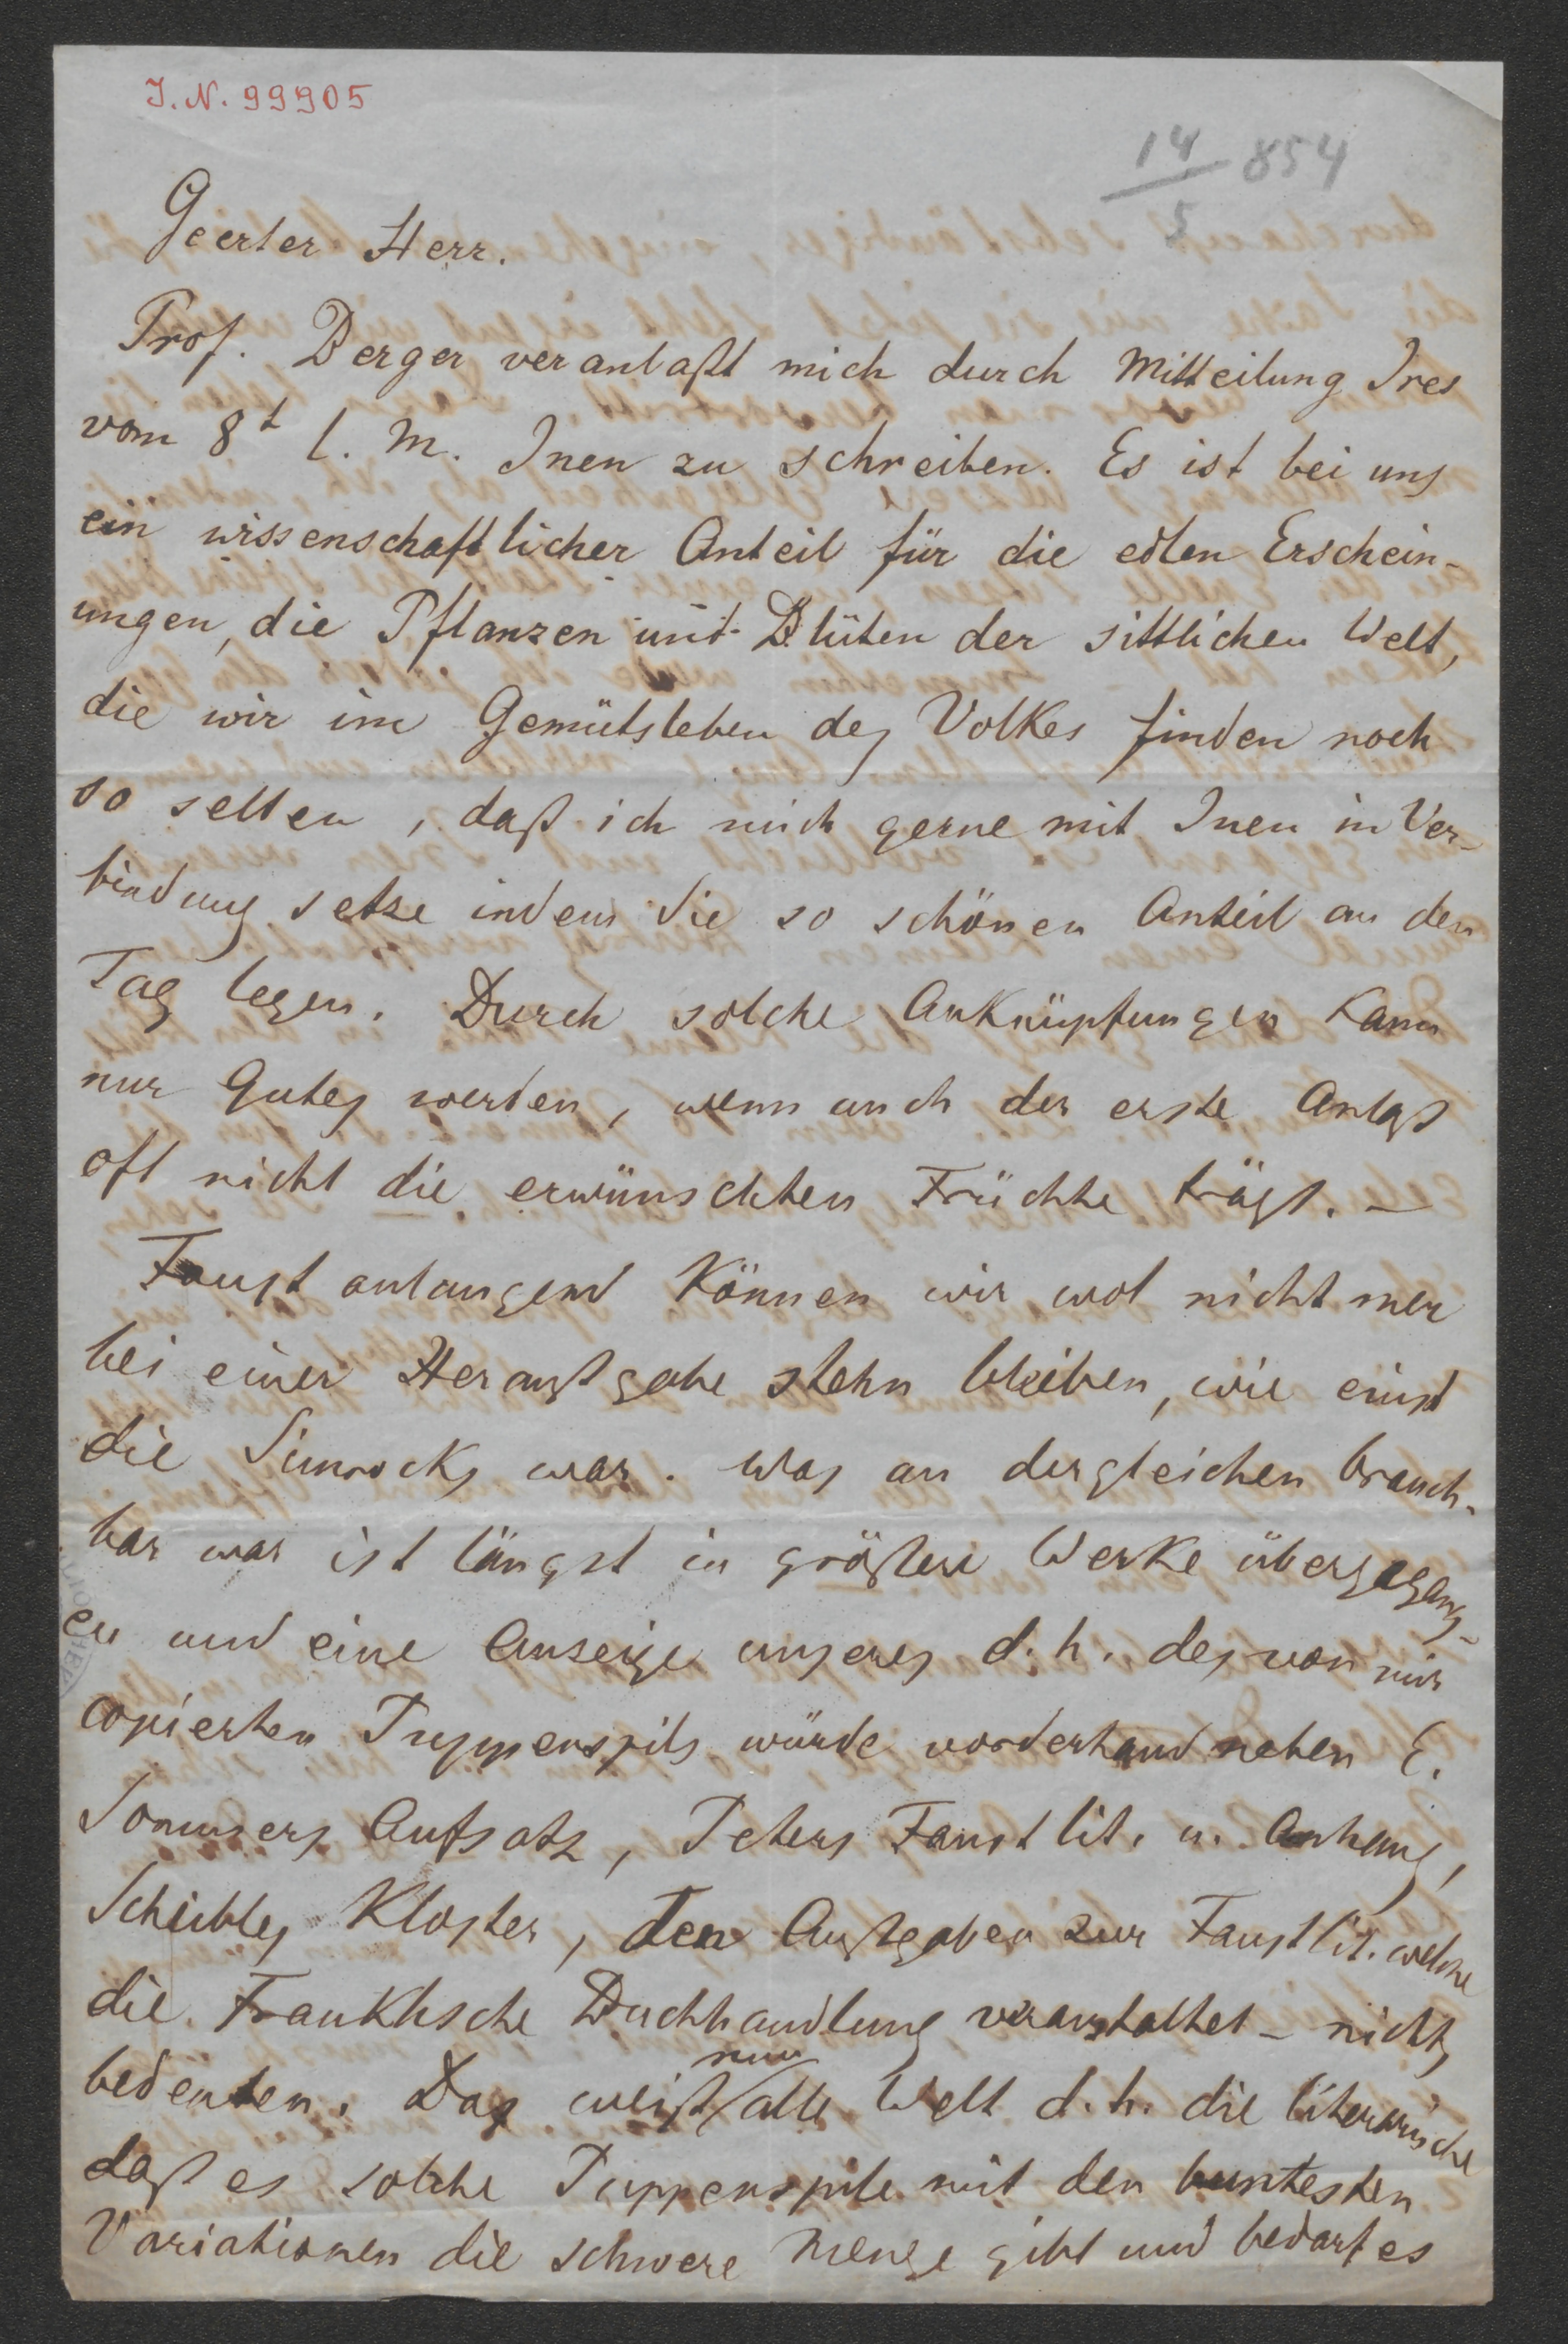 I.N. 99905
14/5 854
Geerter Herr.
Prof. Berger veranlaßt mich durch Mitteilung Ires
vom 8t l. M. Inen zu schreiben. Es ist bei uns
ein wissenschaftlicher Anteil für die edlen Erschein-
ungen, die Pflanzen und Blüten der sittlichen Welt,
die wir im Gemütsleben des Volkes finden noch
so selten, daß ich mich gerne mit Inen in Ver-
bindung setze indem Sie so schönen Anteil an den
Tag legen. Durch solche Anknüpfungen kann
nur Gutes werden, wenn auch der erste Anlaß
oft nicht die erwünschten Früchte trägt. –
Faust anlangend können wir wol nicht mer
bei einer Heraußgabe stehn bleiben, wie einst
die Simrocks war. Was an dergleichen brauch-
bar war ist längst in größere Werke übergegang-
en und eine Anzeige unseres d. h. des von mir
copierten Puppenspils würde vorderhand neben E.
Sommers Aufsatz, Peters Faustlit. u. Anhang,
Scheibles Kloster, den Außgaben zur Faustlit. welche
die Frankhsche Buchhandlung veranstaltet – nichts
bedeuten. Das weiß nun alle Welt d. h. die literarische
daß es solche Puppenspile mit den buntesten
Variationen die schwere Menge gibt und bedarf es